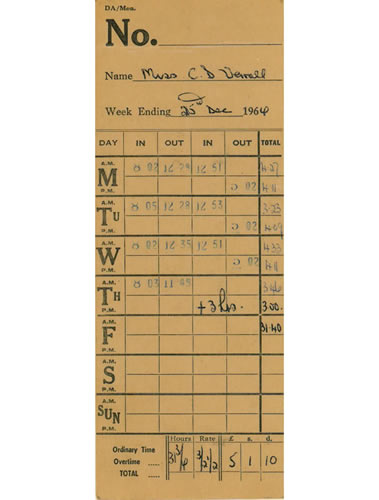 DA/Men.
No.
Name Miss C. D Verrall
Week Ending 25th Dec 1964
DAY IN OUT IN OUT TOTAL
A.M. 8 02 12 29 12 51 4.27
M
P.M. 5 02 4.11
A.M. 8 05 12 28 12 53
TU
P.M. 5 02 4.09
A.M. 8 02 12 35 12 51 4.33
W
P.M. 5 02 4.11
A.M. 8 03 11 45
TH
P.M. + 3 hrs. 3.00
A.M. 31.40
F
P.M.
A.M.
S
P.M.
A.M.
SUN
P.M.
Hours Rate £ s. d.
Ordinary Time 31 3/4 3/2 1/2 5 1 10
Overtime .....
TOTAL .....